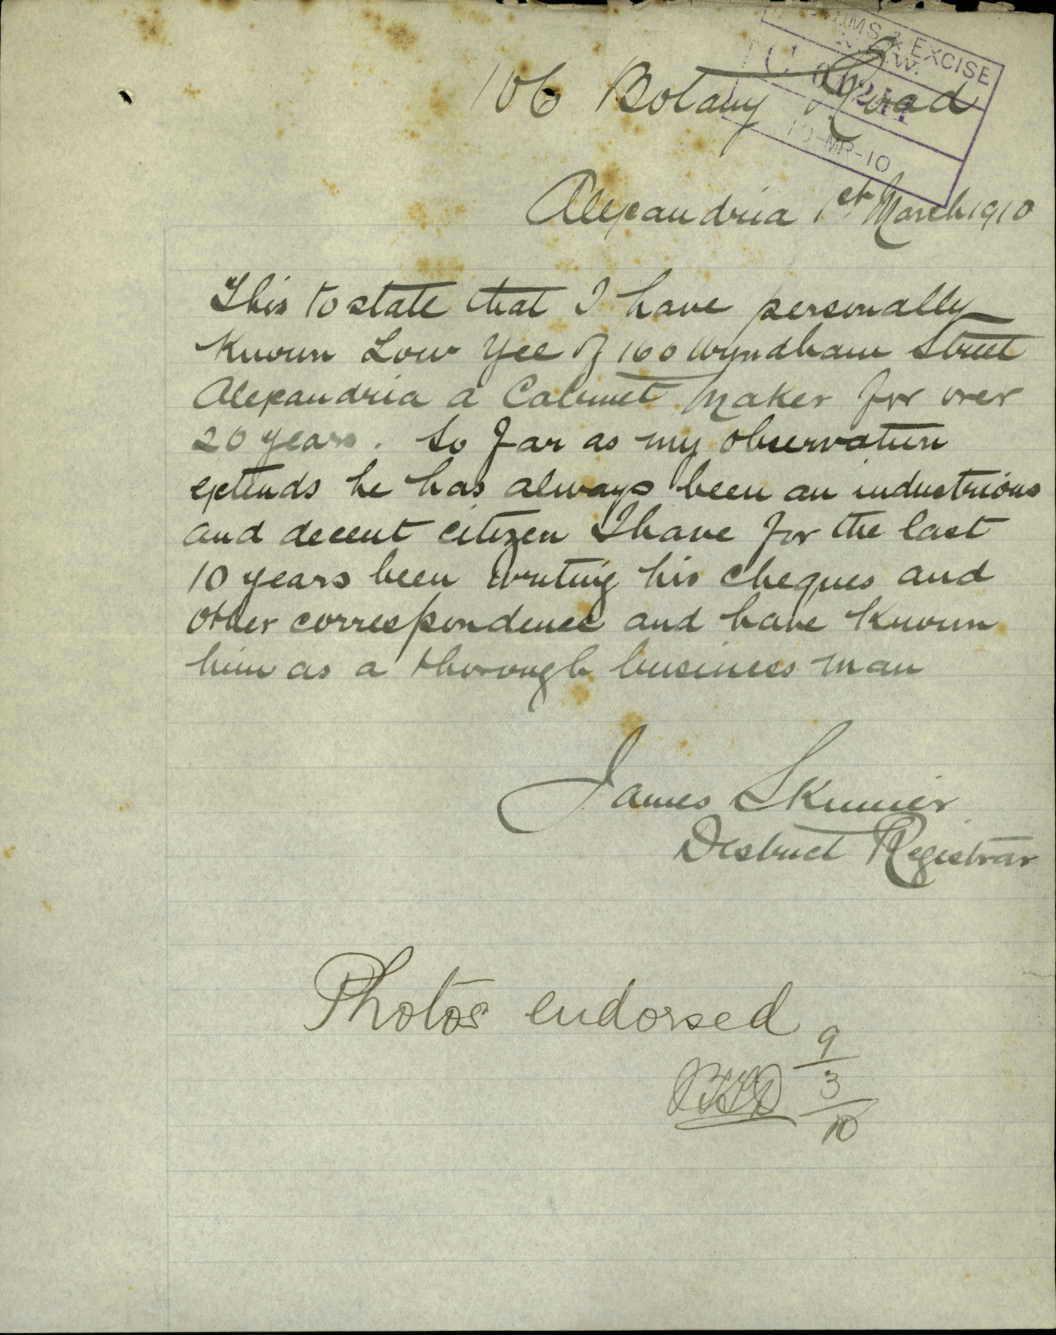 106 Botany Road
Alexandria 1st March 1910
This to state that I have personally
known Low Yee of 160 Wyndham Street
Alexandria a Cabinet Maker for over
20 years. So far as my observation
extends he has always been an industrious
and decent citizen I have for the last
10 years been writing his cheques and
other correspondence and have known
him as a thorough business man
James Skinner
District Registrar
Photos endorsed
9
3
10
OMS & EXCISE
N.S.W.
10-MR-10